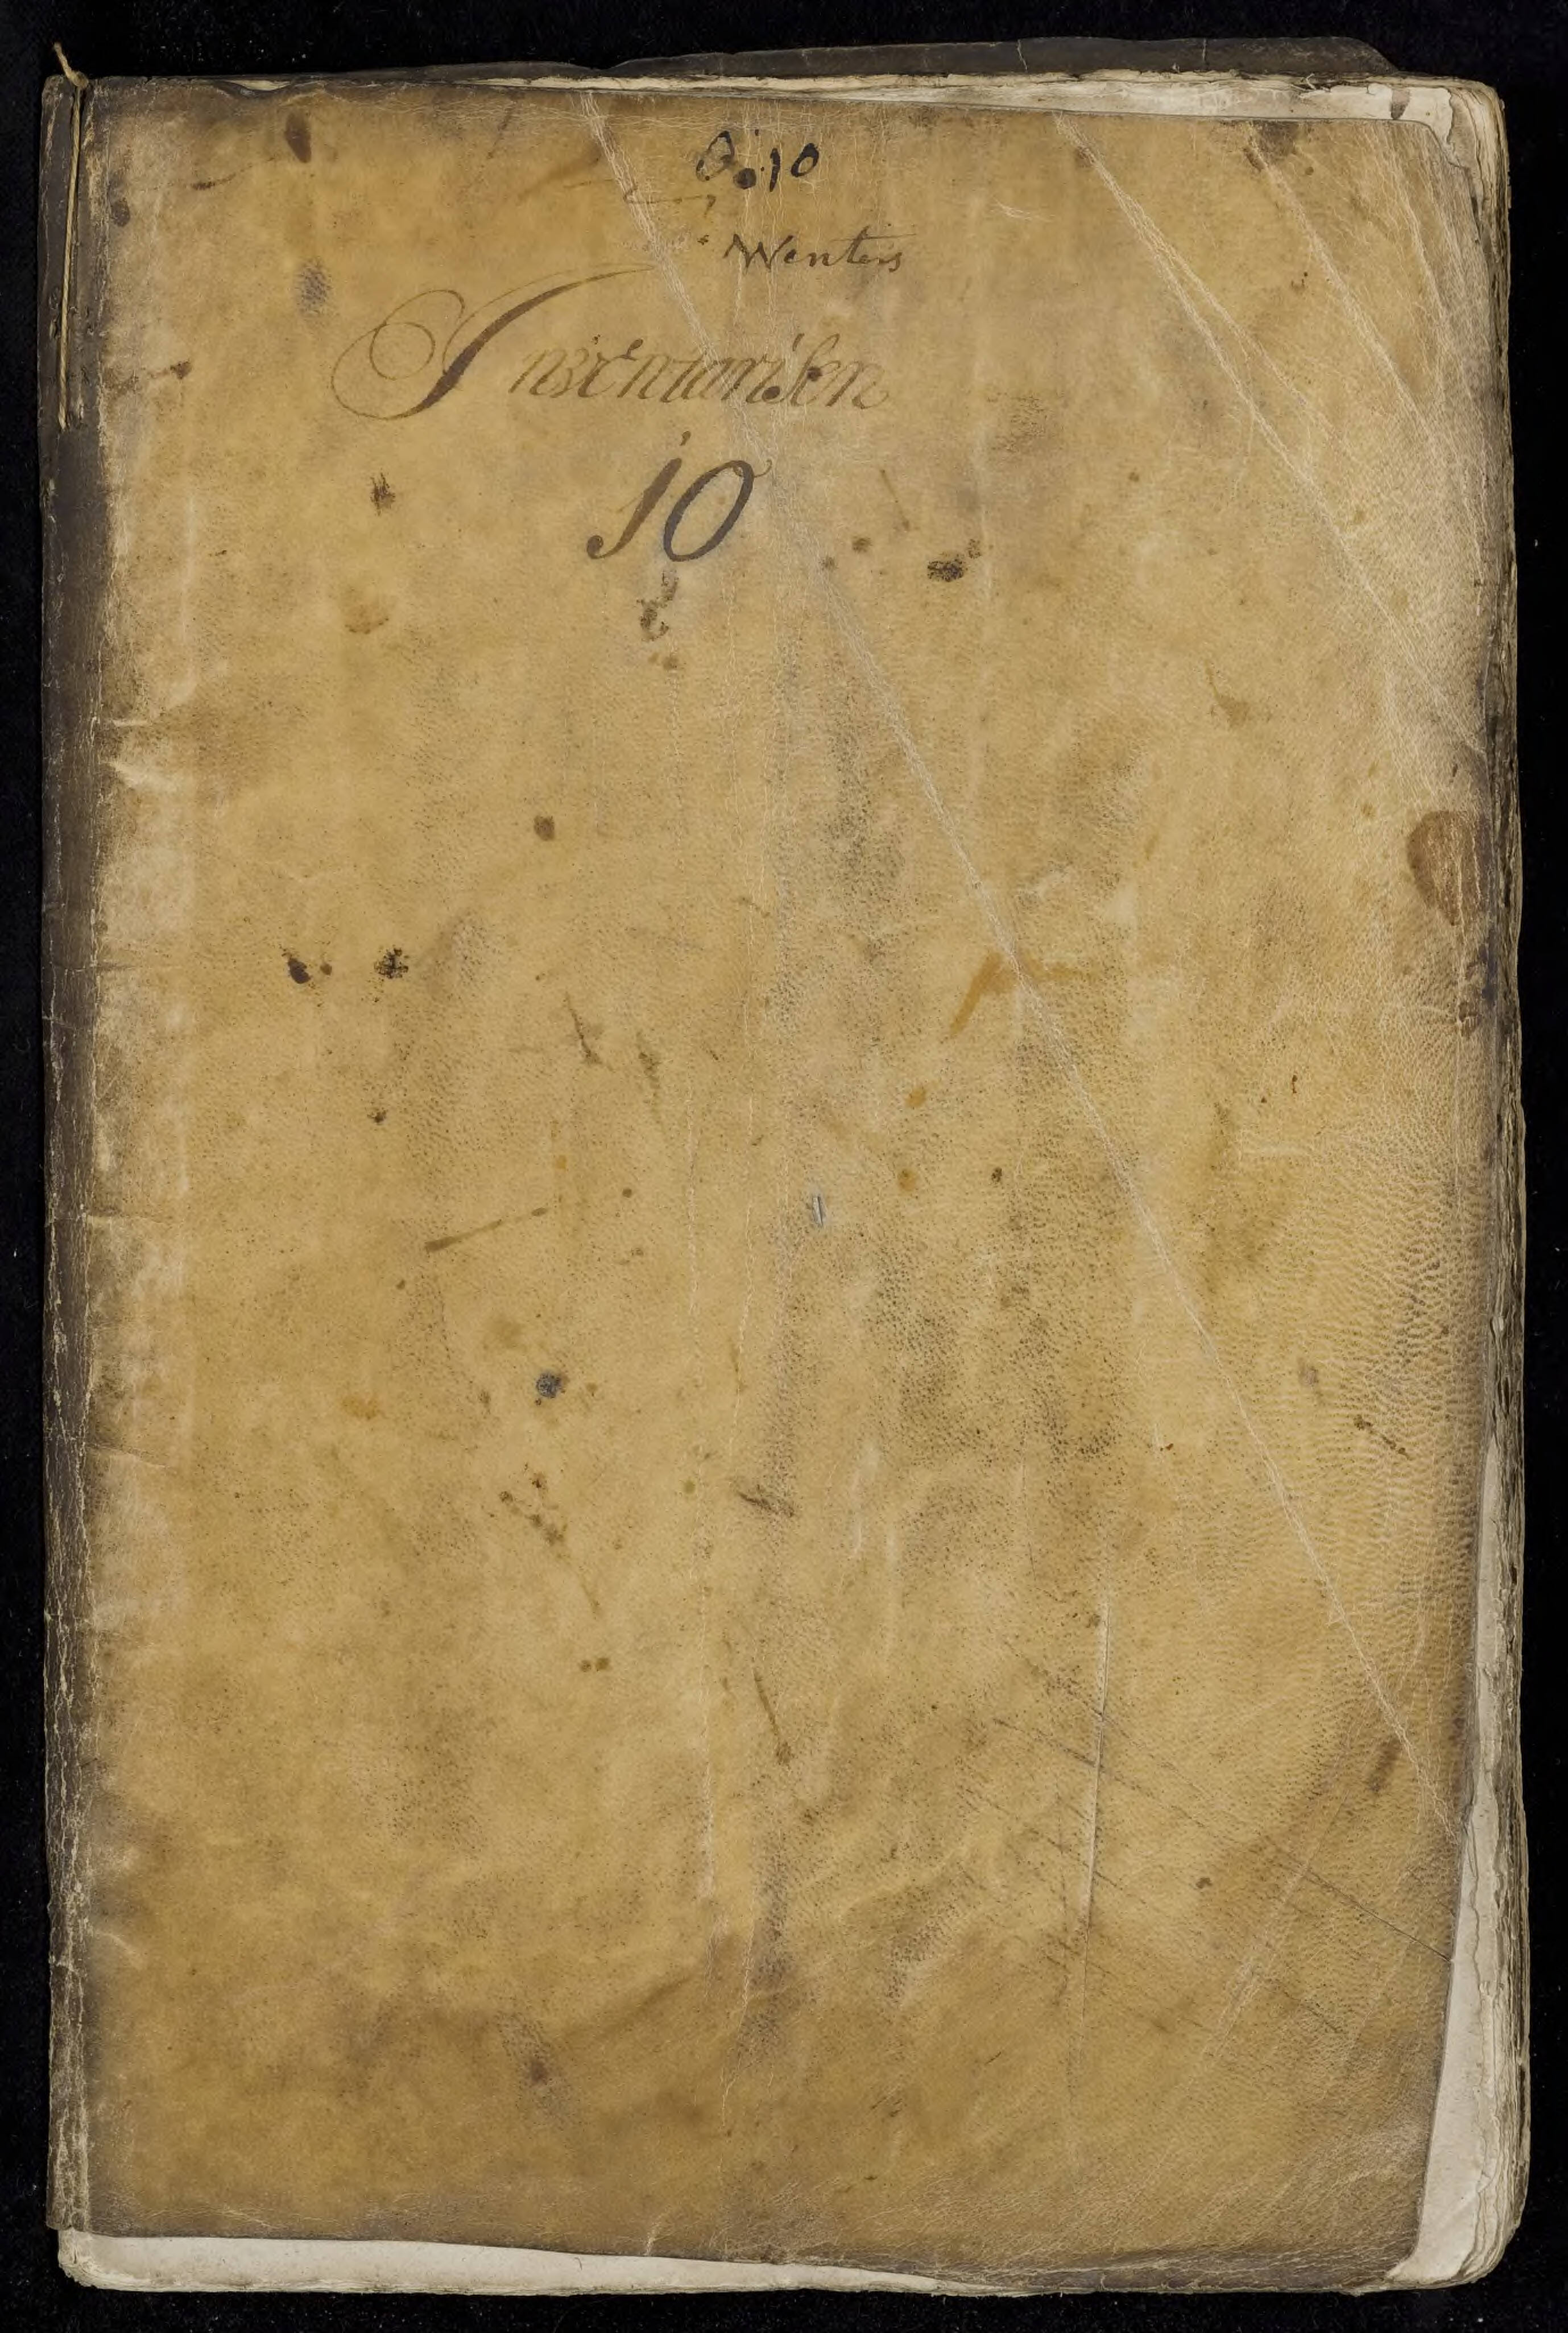 O. 10
Wenters
Inventarisen
10